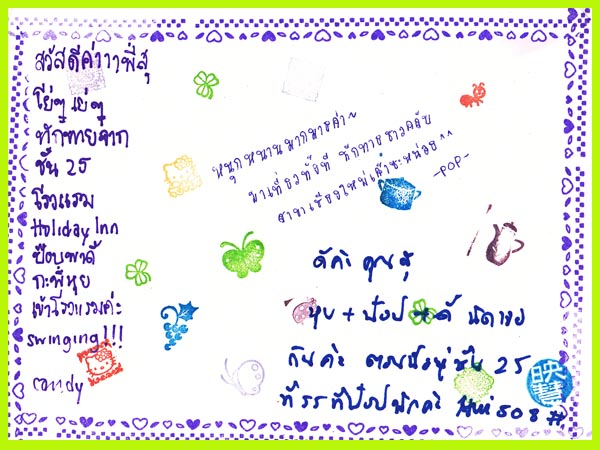 สวัสดีค่าาาพี่สุ
โย่ๆ เย่ๆ
ทักทายจาก
ชั้น 25
โรงแรม
Holiday Inn
ป๊อบพาดี้
กะพี่หุย
เข้าโรงแรมค่ะ
swinging!!!
candy
หนุกหนานมากมายค่า~
มาเที่ยวทั้งที ทักทายชาวคลับ
สาขาเชียงใหม่เค้าซะหน่อย ^^
-POP-
ดีค่ะ คุณสุ
หุย + ป๊อป
กันค่ะ ตอนนี้อยู่ชั้น 25
ที่ รร ที่ป๊อปพักค่ะ
映慧